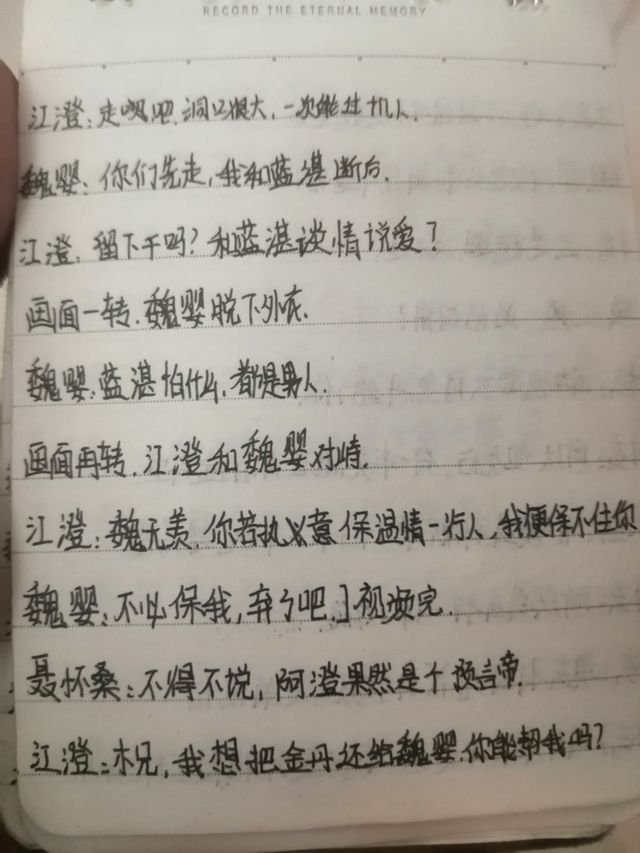 RECORD THE ETERNAL MEMORY
江澄:走呗吧.洞口很大,一次能过九人.
魏婴:你们先走,我和蓝湛断后.
江澄.留下干吗?和蓝湛谈情说爱?
画面一转.魏婴脱下外衣.
魏婴.蓝湛怕什么.都是男人.
画面再转.江澄和魏婴对峙.
江澄:魏无羡.你若执意保温情一行人,我便保不住你
魏婴:不必保我,弃了吧.]视频完.
聂怀桑:不得不说,阿澄果然是个预言帝.
江澄:木兄,我想把金丹还给魏婴.你能帮我吗?